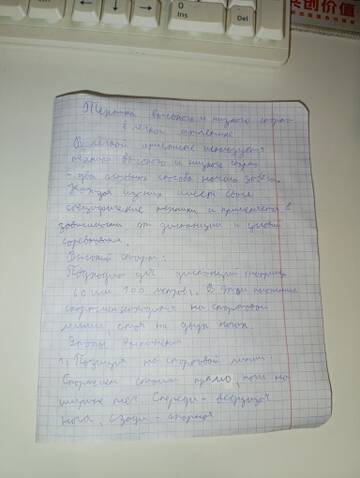 创价值
0
Ins
Del
Техника высокого и низкого старта
в легкой атлетике
В легкой атлетике используется
техника высокого и низкого старта
- два основных способа начала забега.
Каждая из них имеет свои
специфические техники и применяется в
зависимости от дистанции и условий
соревнования.
Высокий старт:
Подходит для дистанций
60 или 100 метров. В этом положении
спортсмен находится на стартовой
линии, стоя на двух ногах.
Этапы выполнения
1) Позиция на стартовой линии:
Спортсмен стоит прямо, ноги на
ширине плеч. Спереди - ведущая
нога, сзади - опорная